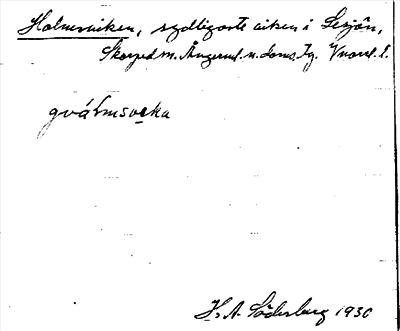 Holmsviken, sydligaste viken i Lesjön,
Skorped sn. Ångerml. n. doms. Tg. Vnorrl. l.
gválmsveka
H. A. Söderberg 1930